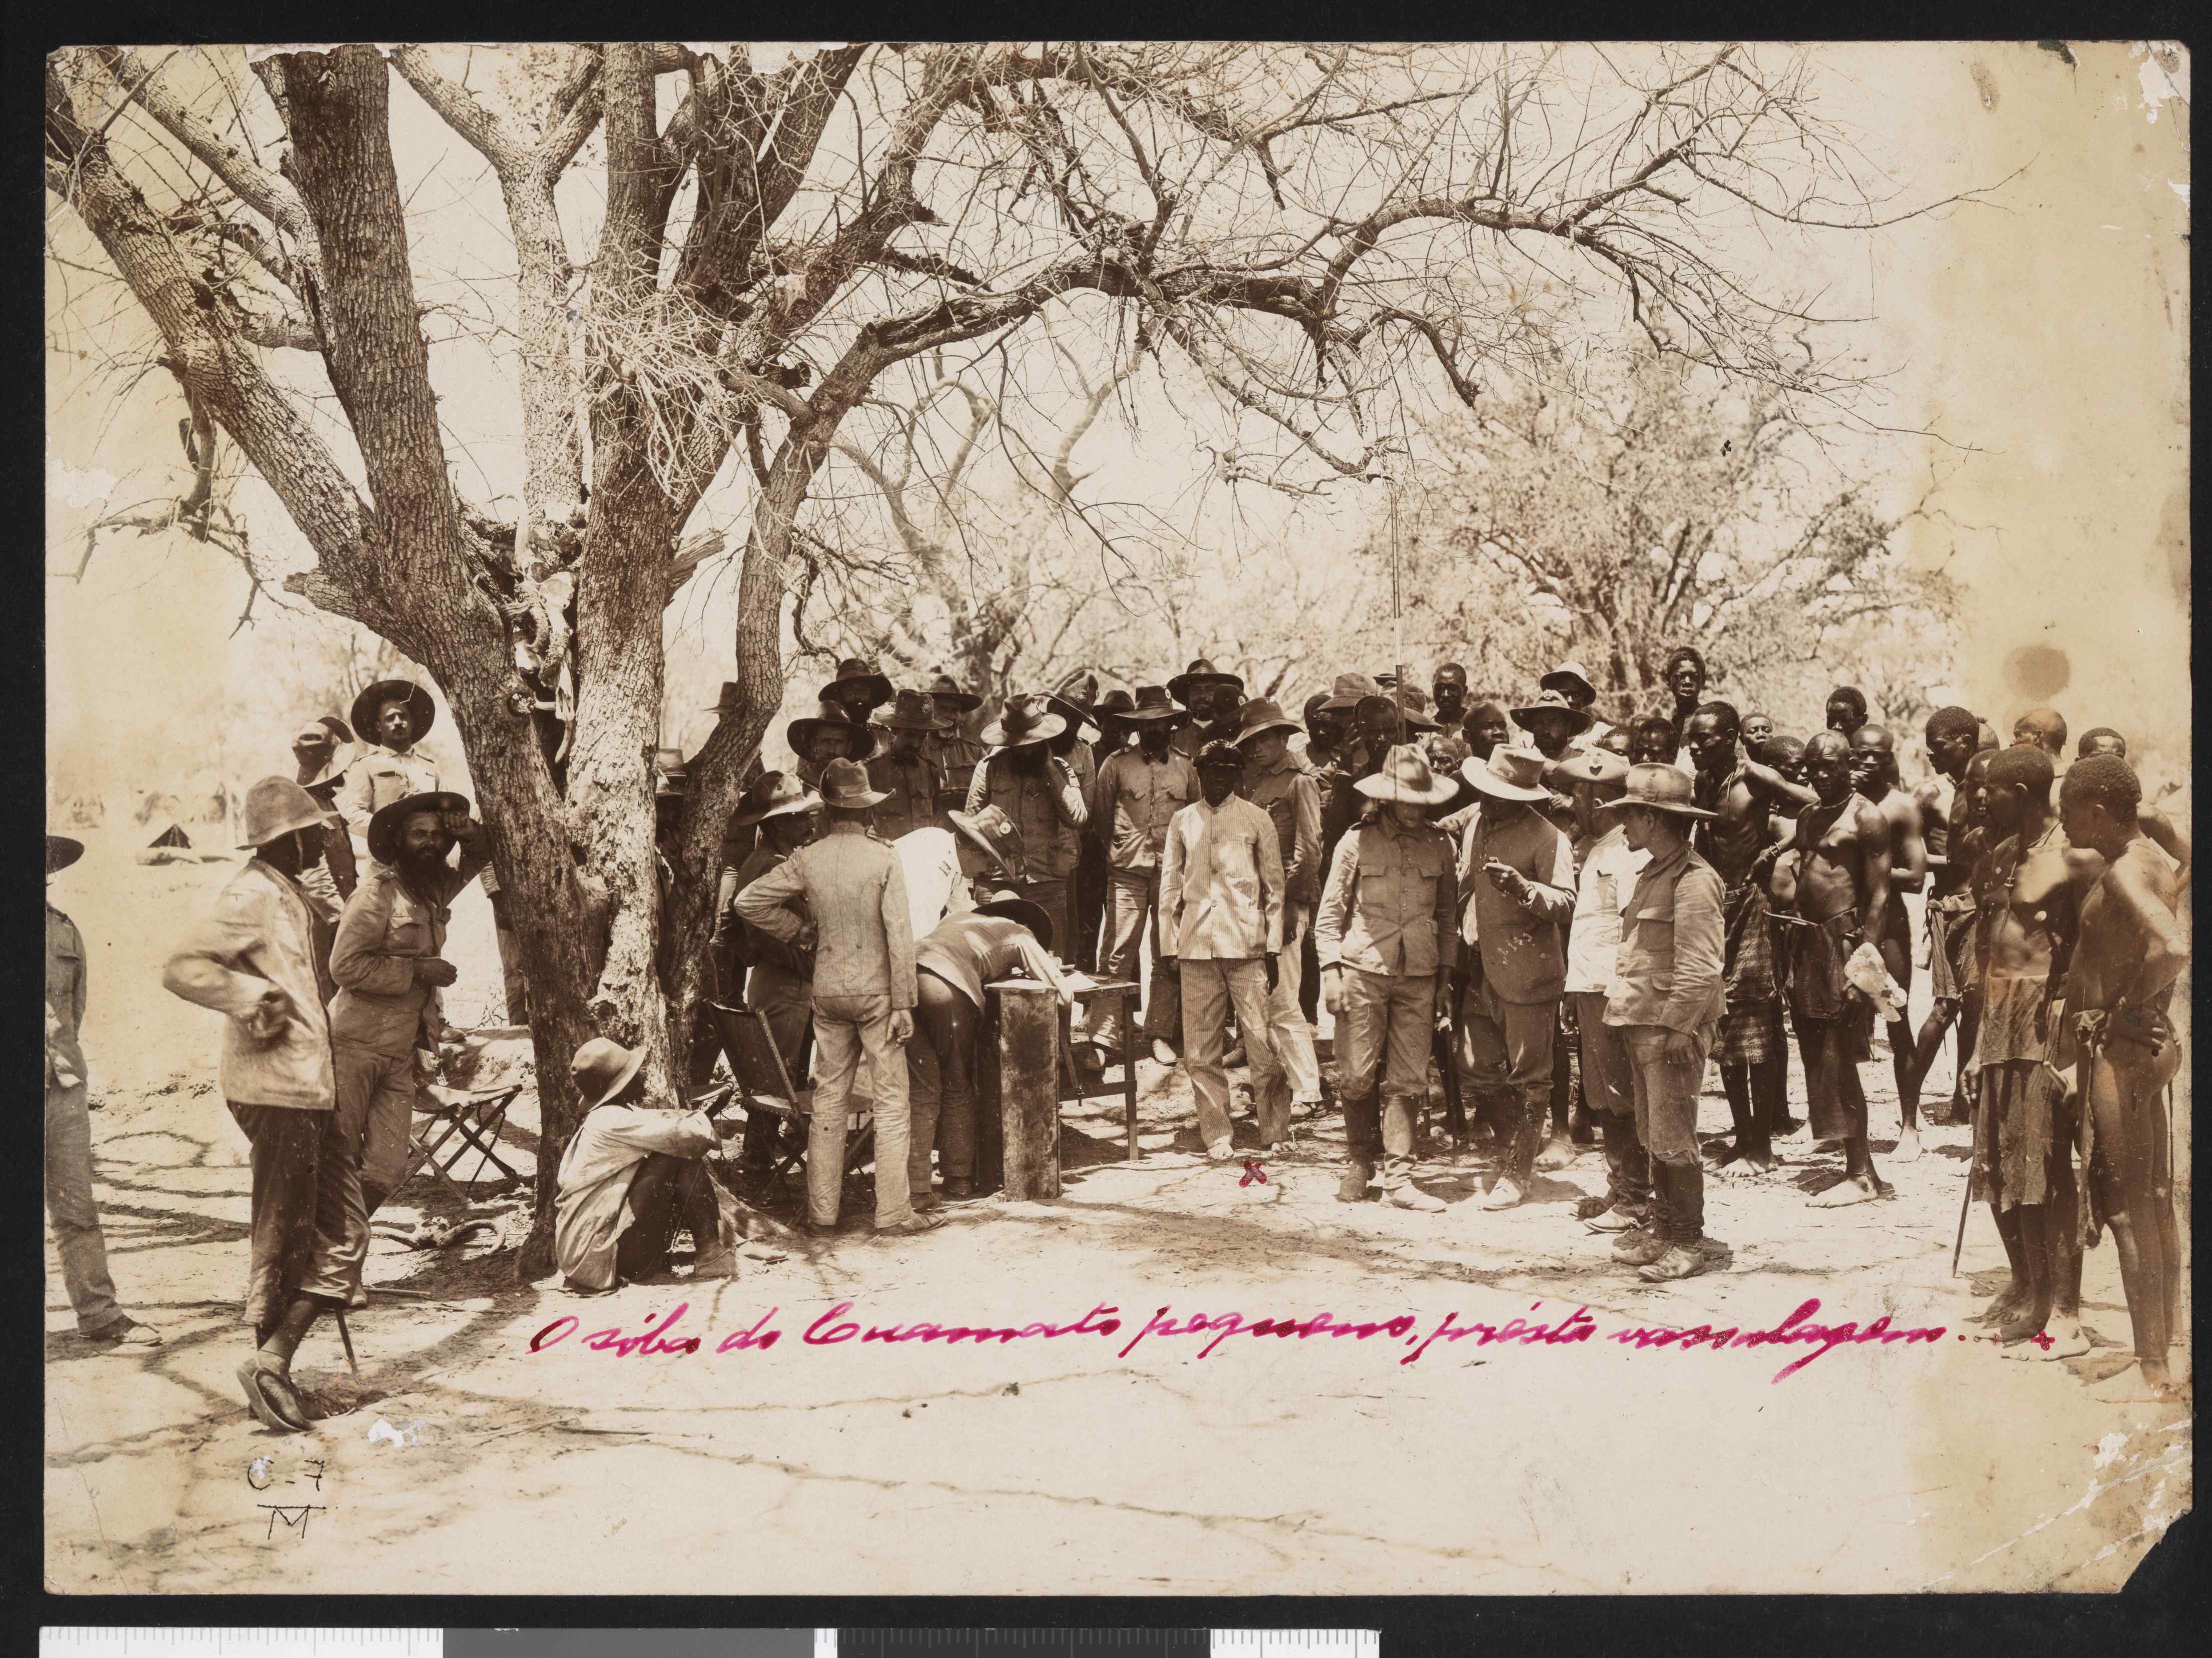 O sóba do Cuamato pequeno, présta vassalagem....
C-7
M